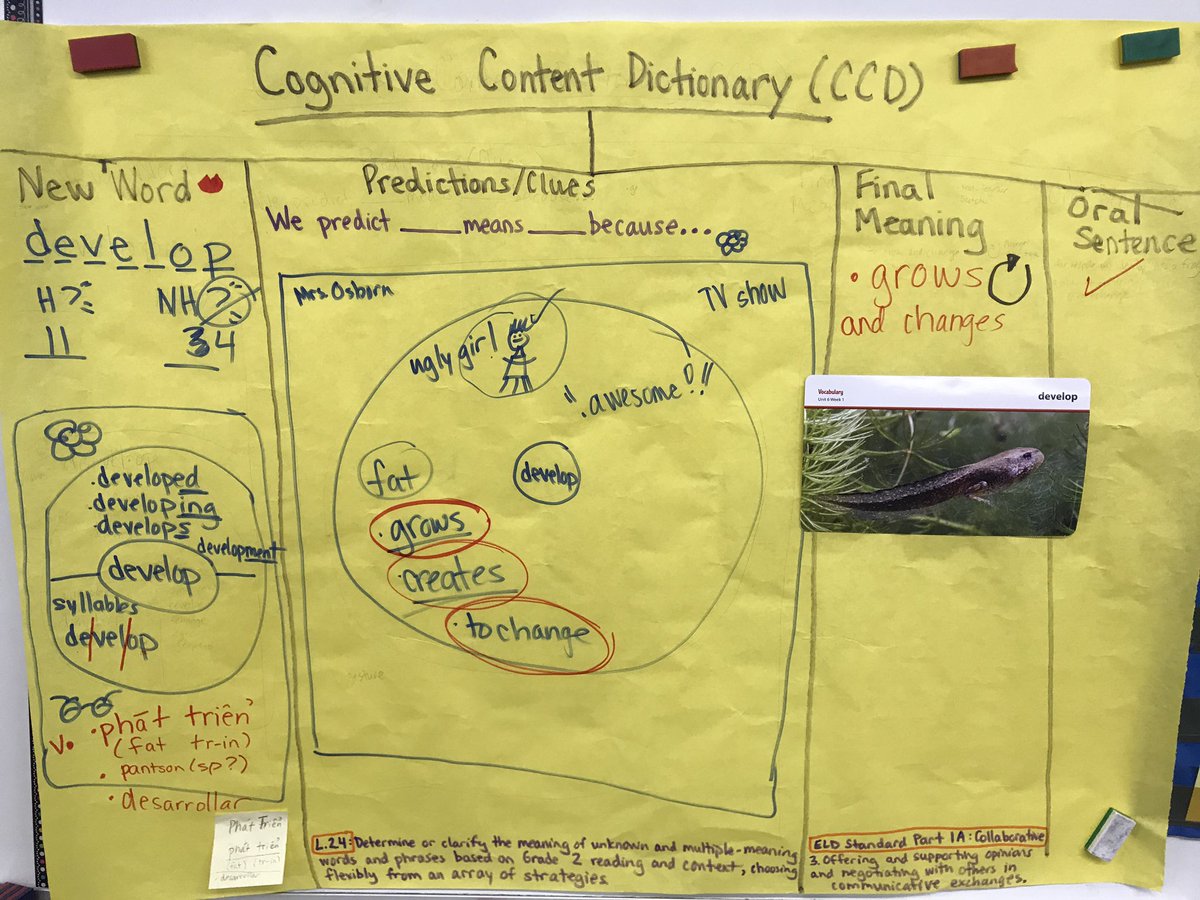 Cognitive Content Dictionary (CCD)
New Word
develop
H? NH?
11 34
.developed
.developing
.develops
development
develop
syllables
de/vel/op
V. •phát triển
(fat tr-in)
• pantson (sp?)
• desarrollar
Phát Triển
phát triển
(fat) (tr-in)
desarrollar
Predictions/Clues
We predict ____means ____because...
Mrs. Osborn
TV show
ugly girl
"awesome!"
fat
develop
.grows
.creates
.to change
L.2.4: Determine or clarify the meaning of unknown and multiple-meaning
words and phrases based on Grade 2 reading and context, choosing
flexibly from an array of strategies.
Final
Meaning
• grows
and changes
Vocabulary
Unit 6 Week 1
develop
Oral
Sentence
ELD Standard Part 1A: Collaborative
3. Offering and supporting opinions
and negotiating with others in
communicative exchanges.